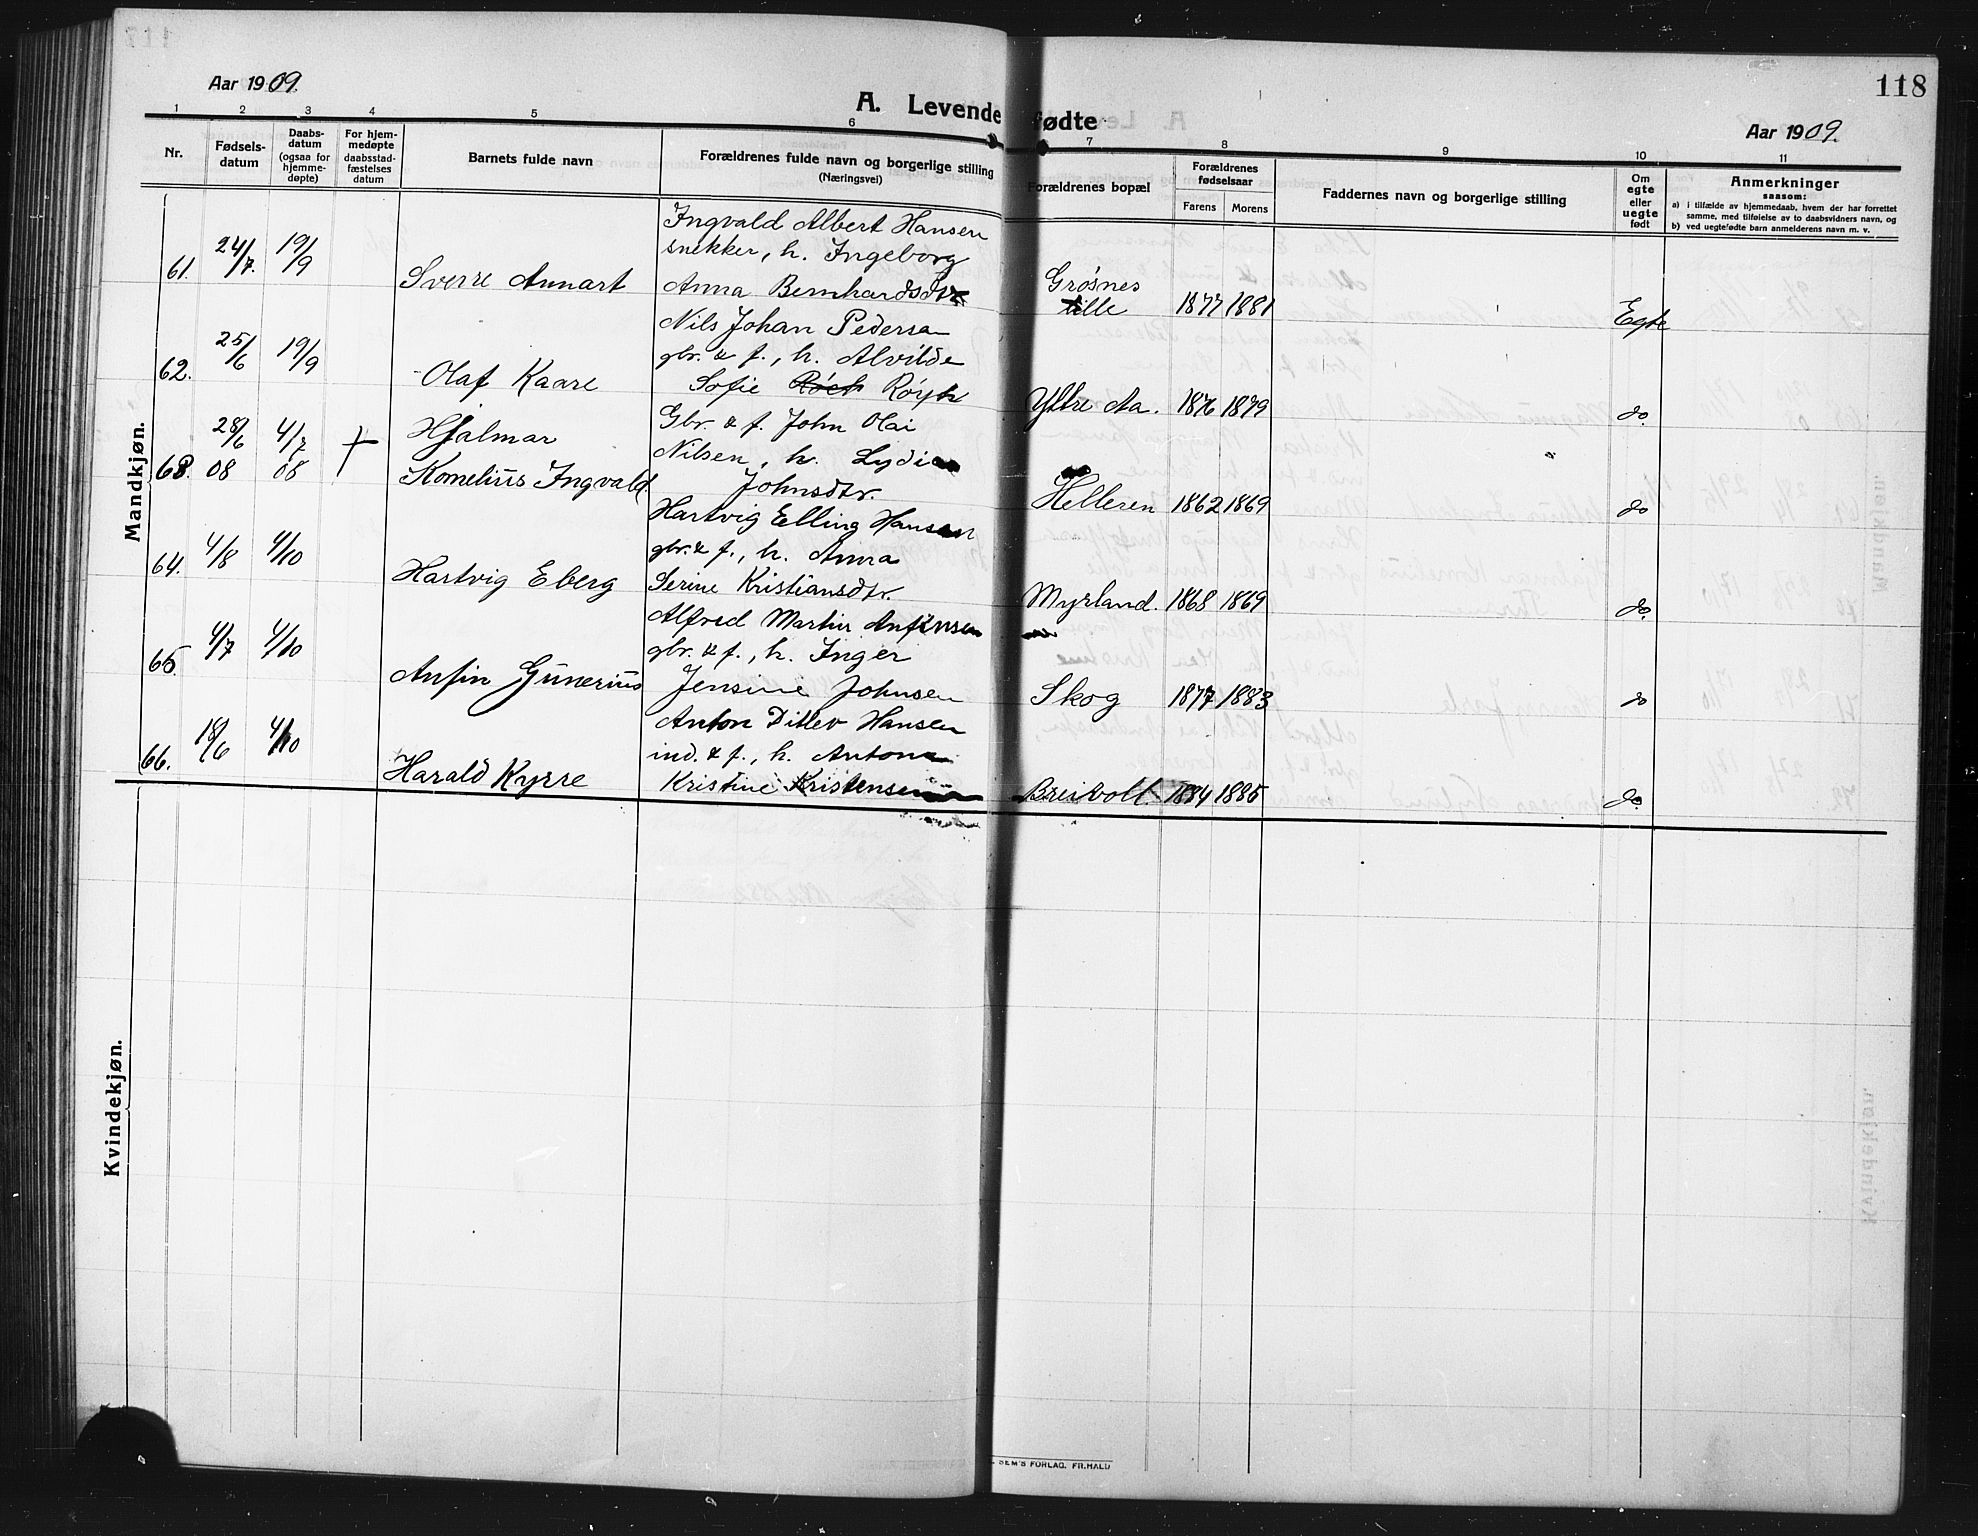 118
Aar 1909.
A. Levende fødte
Aar 1909.
1 2 3 4 5 6 7 8 9 10 11
Nr.
Fødsels-
datum
Daabs-
datum
(ogsaa for
hjemme-
døpte)
For hjem-
medøpte
daabsstad-
fæstelses
datum
Barnets fulde navn
Forældrenes fulde navn og borgerlige stilling
(Næringsvei)
Forældrenes bopæl
Forældrenes
fødselsaar
Farens Morens
Faddernes navn og borgerlige stilling
Om
egte
eller
uegte
født
Anmerkninger
saasom:
a) i tilfælde av hjemmedaab, hvem der har forrettet
samme, med tilføielse av to daabsvidners navn, og
b) ved uegtefødte barn anmelderens navn m. v.
Mandkjøn.
61. 24/7. 19/9 Sverre Annart
Ingvald Albert Hansen
snekker, h. Ingeborg
Anna Bernhardsdtr
Grøsnes
lille 1877 1881 Egte
62. 25/6 19/9 Olaf Kaare
Nils Johan Pedersa
gbr. & f., h. Alvilde
Sofie Røyk
Yttre Aa. 1876 1879 do.
63. 28/6 08 4/7 08 Hjalmar
Kornelius Ingvald.
Gbr. & f. John Olai
Nilsen, h. Lydia
Johnsdtr.
Helleren 1862 1869 do
64. 4/8 4/10 Hartvig Eberg
Hartvig Elling Hansen
gbr. & f., h. Anna
Serine Kristiansdtr.
Myrland. 1868 1869 do.
65. 4/7 4/10 Anfin Gunerius
Alfred Martin Anfinsen
gbr. & f., h. Inger
Jensine Johnsen
Skog 1877 1883 do
66. 18/6 4/10 Harald Kyrre
Anton Ditlev Hansen
ind. & f., h. Antone
Kristine Kristensen
Breivoll 1884 1885 do.
Kvindekjøn.
SEM'S FORLAG, FR.HALD